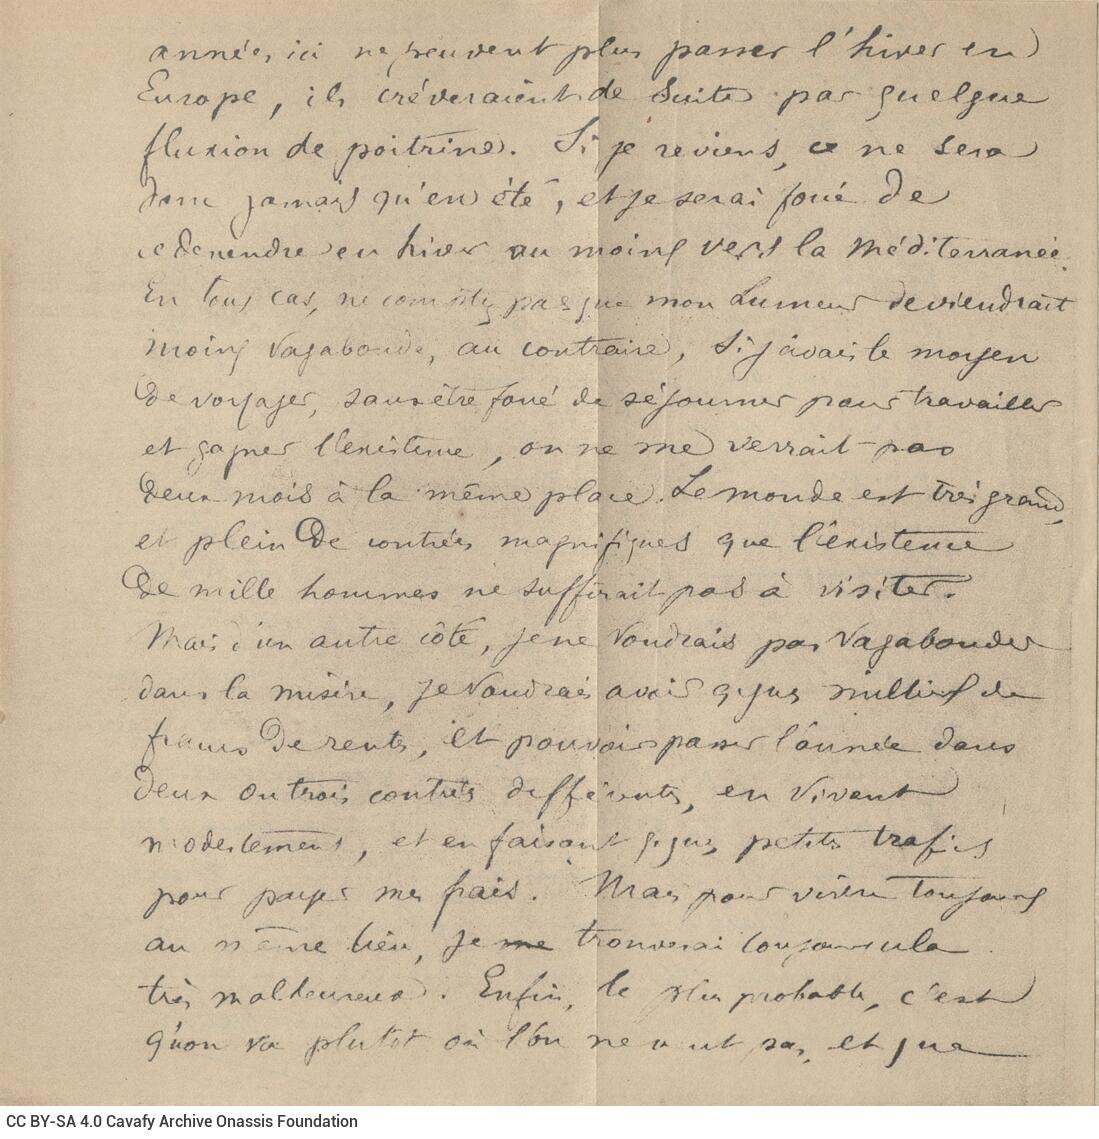 années ici ne peuvent plus passer l'hiver en
Europe, ils crèveraient de suite par quelque
fluxion de poitrine. Si je reviens, ce ne sera
donc jamais qu'en été, et je serai forcé de
redescendre en hiver au moins vers la Méditerranée.
En tous cas, ne comptez pas que mon humeur deviendrait
moins vagabonde, au contraire, si j'avais le moyen
de voyager, sans être forcé de séjourner pour travailler
et gagner l'existence, on ne me verrait pas
deux mois à la même place. Le monde est très grand,
et plein de contrées magnifiques que l'existence
de mille hommes ne suffirait pas à visiter.
Mais d'un autre côté, je ne voudrais pas vagabonder
dans la misère, je voudrais avoir qques milliers de
francs de rentes, et pouvoir passer l'année dans
deux ou trois contrées différentes, en vivant
modestement, et en faisant qques petits trafics
pour payer mes frais. Mais pour vivre toujours
au même lieu, je me trouverai toujours cela
très malheureux. Enfin, le plus probable, c'est
qu'on va plutôt où l'on ne veut pas, et que
CC BY-SA 4.0 Cavafy Archive Onassis Foundation